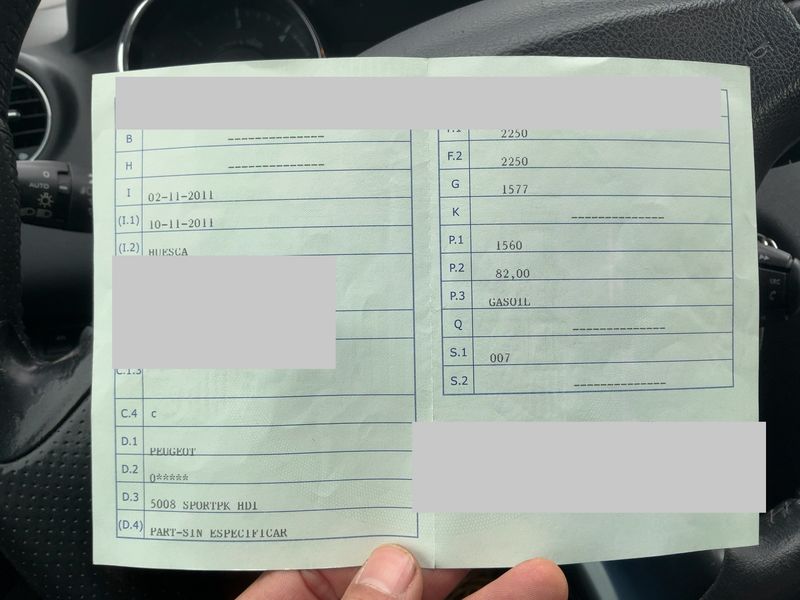 B --------------
H --------------
I 02-11-2011
(I.1) 10-11-2011
(I.2) HUESCA
C.1.3
C.4 c
D.1 PEUGEOT
D.2 0*****
D.3 5008 SPORTPK HDI
(D.4) PART-SIN ESPECIFICAR
F.1 2250
F.2 2250
G 1577
K --------------
P.1 1560
P.2 82,00
P.3 GASOIL
Q --------------
S.1 007
S.2 --------------
AUTO